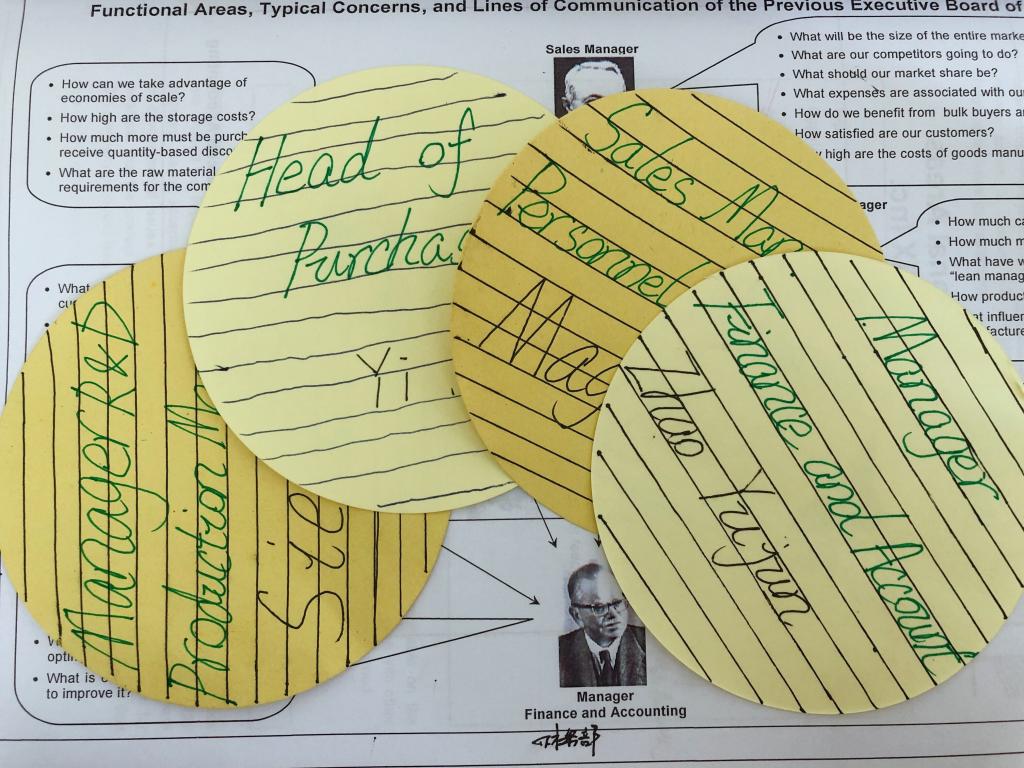 Functional Areas, Typical Concerns, and Lines of Communication of the Previous Executive Board of
Sales Manager
• How can we take advantage of
economies of scale?
• How high are the storage costs?
• How much more must be purch
receive quantity-based disco
• What are the raw material
requirements for the com
• What will be the size of the entire marke
• What are our competitors going to do?
• What should our market share be?
• What expenses are associated with ou
• How do we benefit from bulk buyers a
How satisfied are our customers?
high are the costs of goods manu
ager
• How much ca
• How much m
• What have w
"lean manag
How produc
at influen
facture
Head of
Purchas
Yi
Sales Man
Personnel
Manager
Finance and Account
Zhuo Yujun
Manager R&D
Production M
• What
opti
• What is
to improve it?
Manager
Finance and Accounting